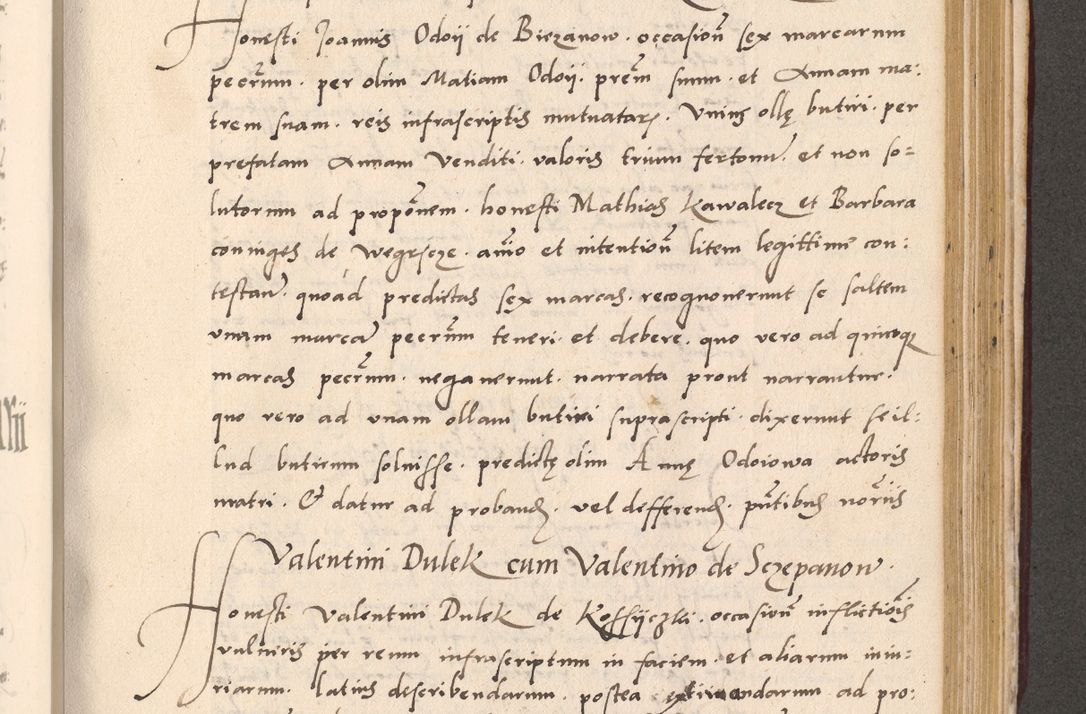 Honesti Joannis Odoij de Biezanow · occasioñ sex marcarum
pecc̃um · per olim Matiam Odoij · prem̃ suum · et Annam ma:
trem suam · reis infrascriptis mutuatarꝫ · Unius ollę butiri · per
prefatam Annam Venditi · valoris trium fertonũ · et non so=
lutorum ad propõnem · honesti Mathias Kawalecz et Barbara
coniuges de Wegrzcze · animo et intentioñ litem legittimẽ con:
testanĩ · quoad predictas sex marcas · recognouerunt se saltem
unam marcã pecc̃um teneri · et debere · quo vero ad quinqꝫ
marcas pecc̃um · negauerunt · narrata prout narrantur ·
quo vero ad unam ollam butiri suprascripti · dixerunt se il:
lud butirum soluisse · predictę olim Annę Odoiowa actoris
matri · Et datur ad probandꝫ · vel defferendꝫ · pñtibus notariis
Valentini Dulek cum Valentino de Sczepanow ·
Honesti Valentini Dulek de Koffiiczki · occasioñ inflictiõis
vulneris per reum infrascriptum in faciem · et aliarum iniu:
riarum · latius describendarum · postea extimandarum ad pro: